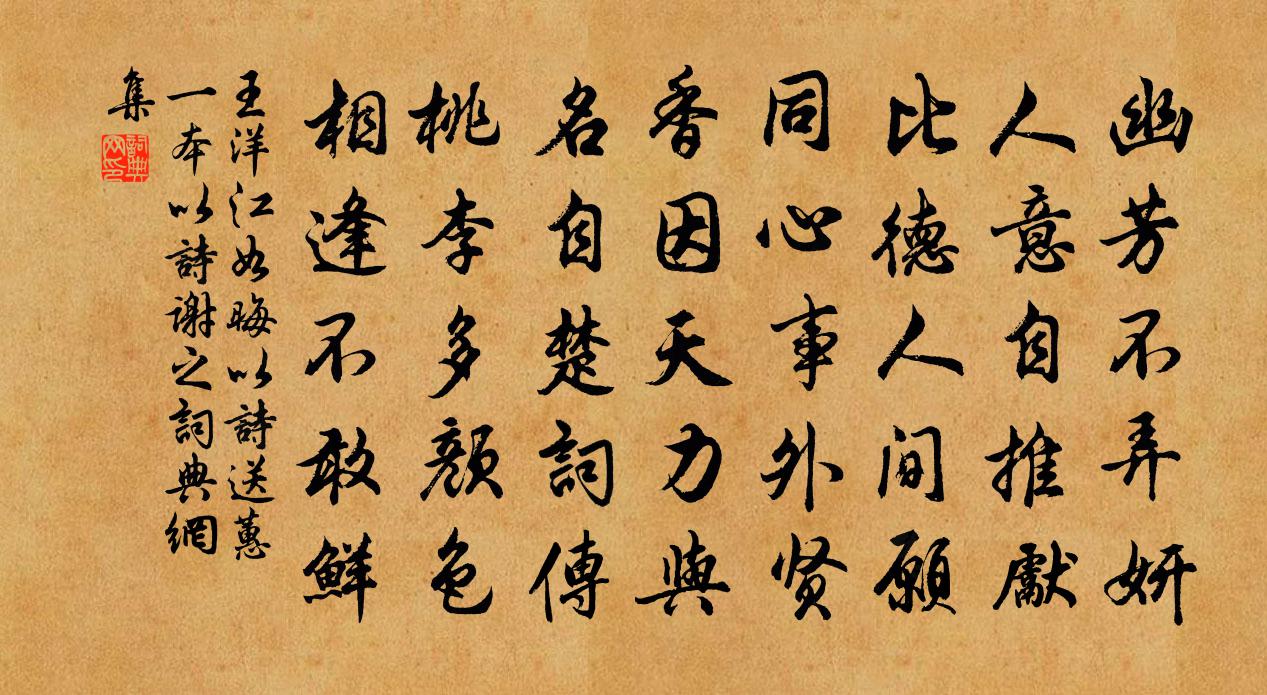 幽芳不弄妍
人意自推獻
比德人間願
同心事外贤
香因天力與
名自楚詞傳
桃李多顏色
相逢不敢鮮
王洋江如晦以詩送蕙
一本以詩謝之詞典網
集
詞典網印